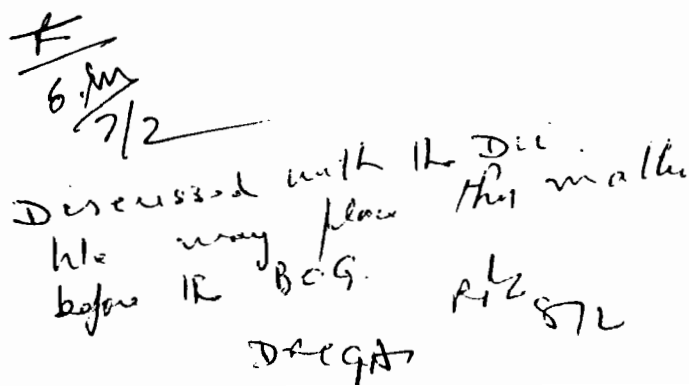 7/2
Discussed with the Dir
We may place this matter
before the BOG.
8/2